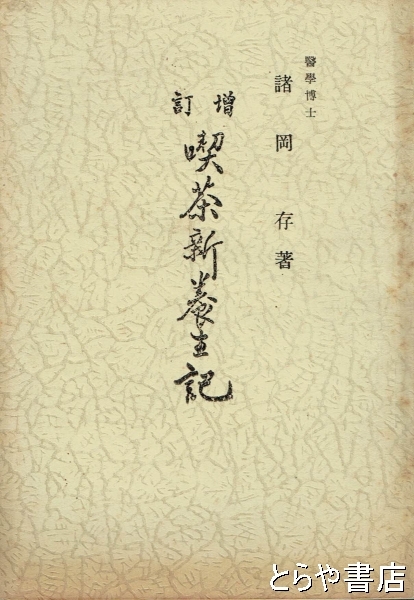 醫學博士
諸岡存著
增訂
喫茶新養生記
とらや書店